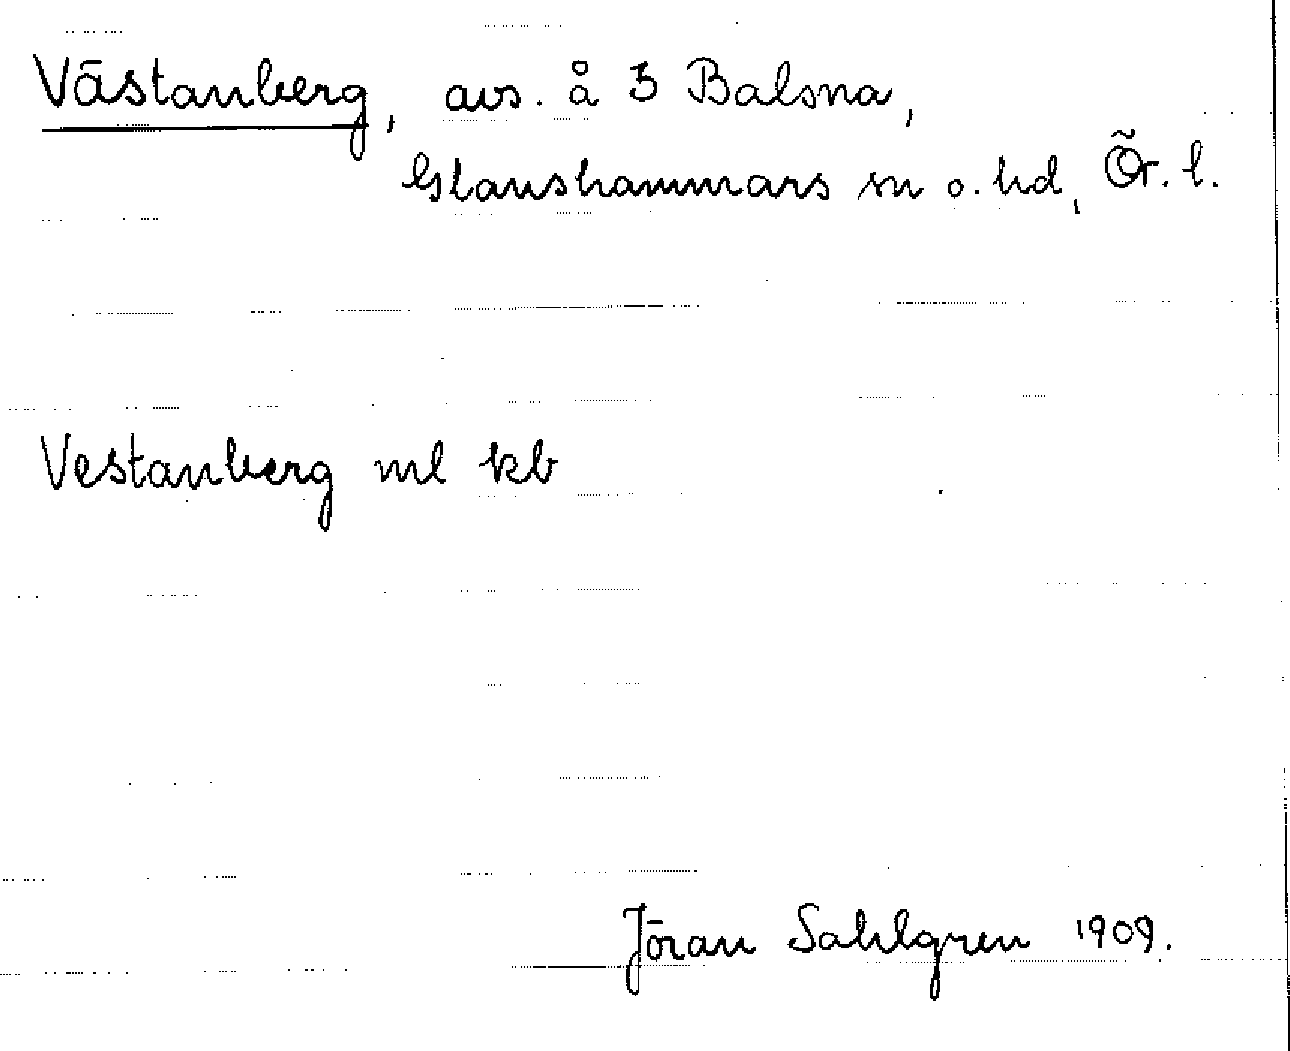 Västanberg, avs. å 3 Balsna,
Glanshammars sn o. hd, Ör. l.
Vestanberg ml kb
Jöran Sahlgren 1909.